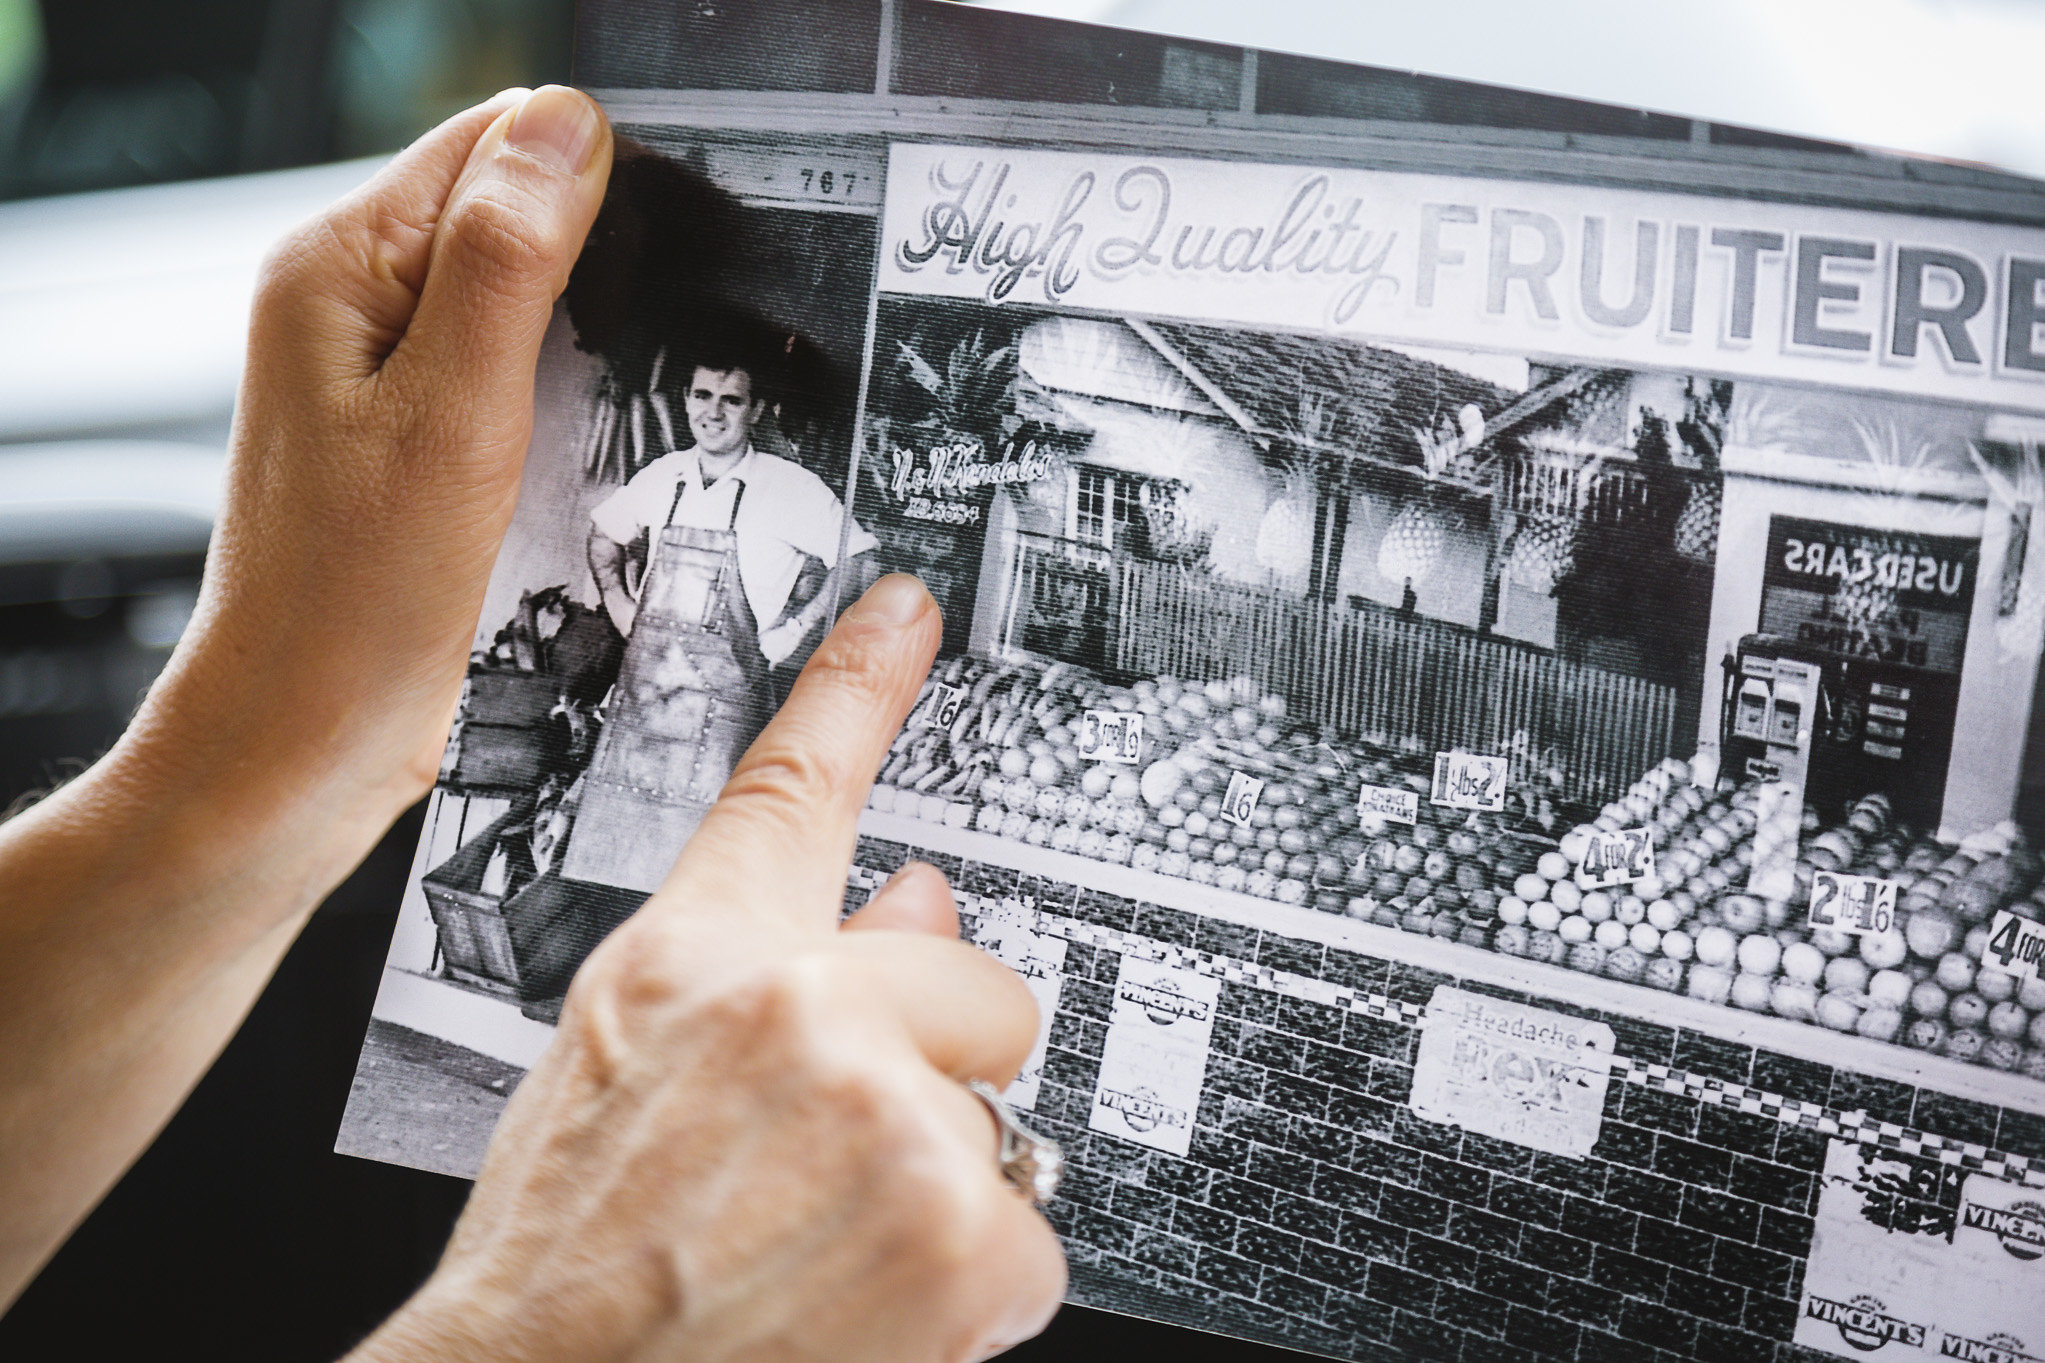 767
High Quality FRUITERE
N & N Kendalis
USED CARS
1'6
3 FOR 1'9
1'6
4 FOR 2'
2 lbs 1'6
4 FOR
VINCENT'S
VINCENT'S
Headache
BEX
VINCEN
VINCENT'S
VINCENT